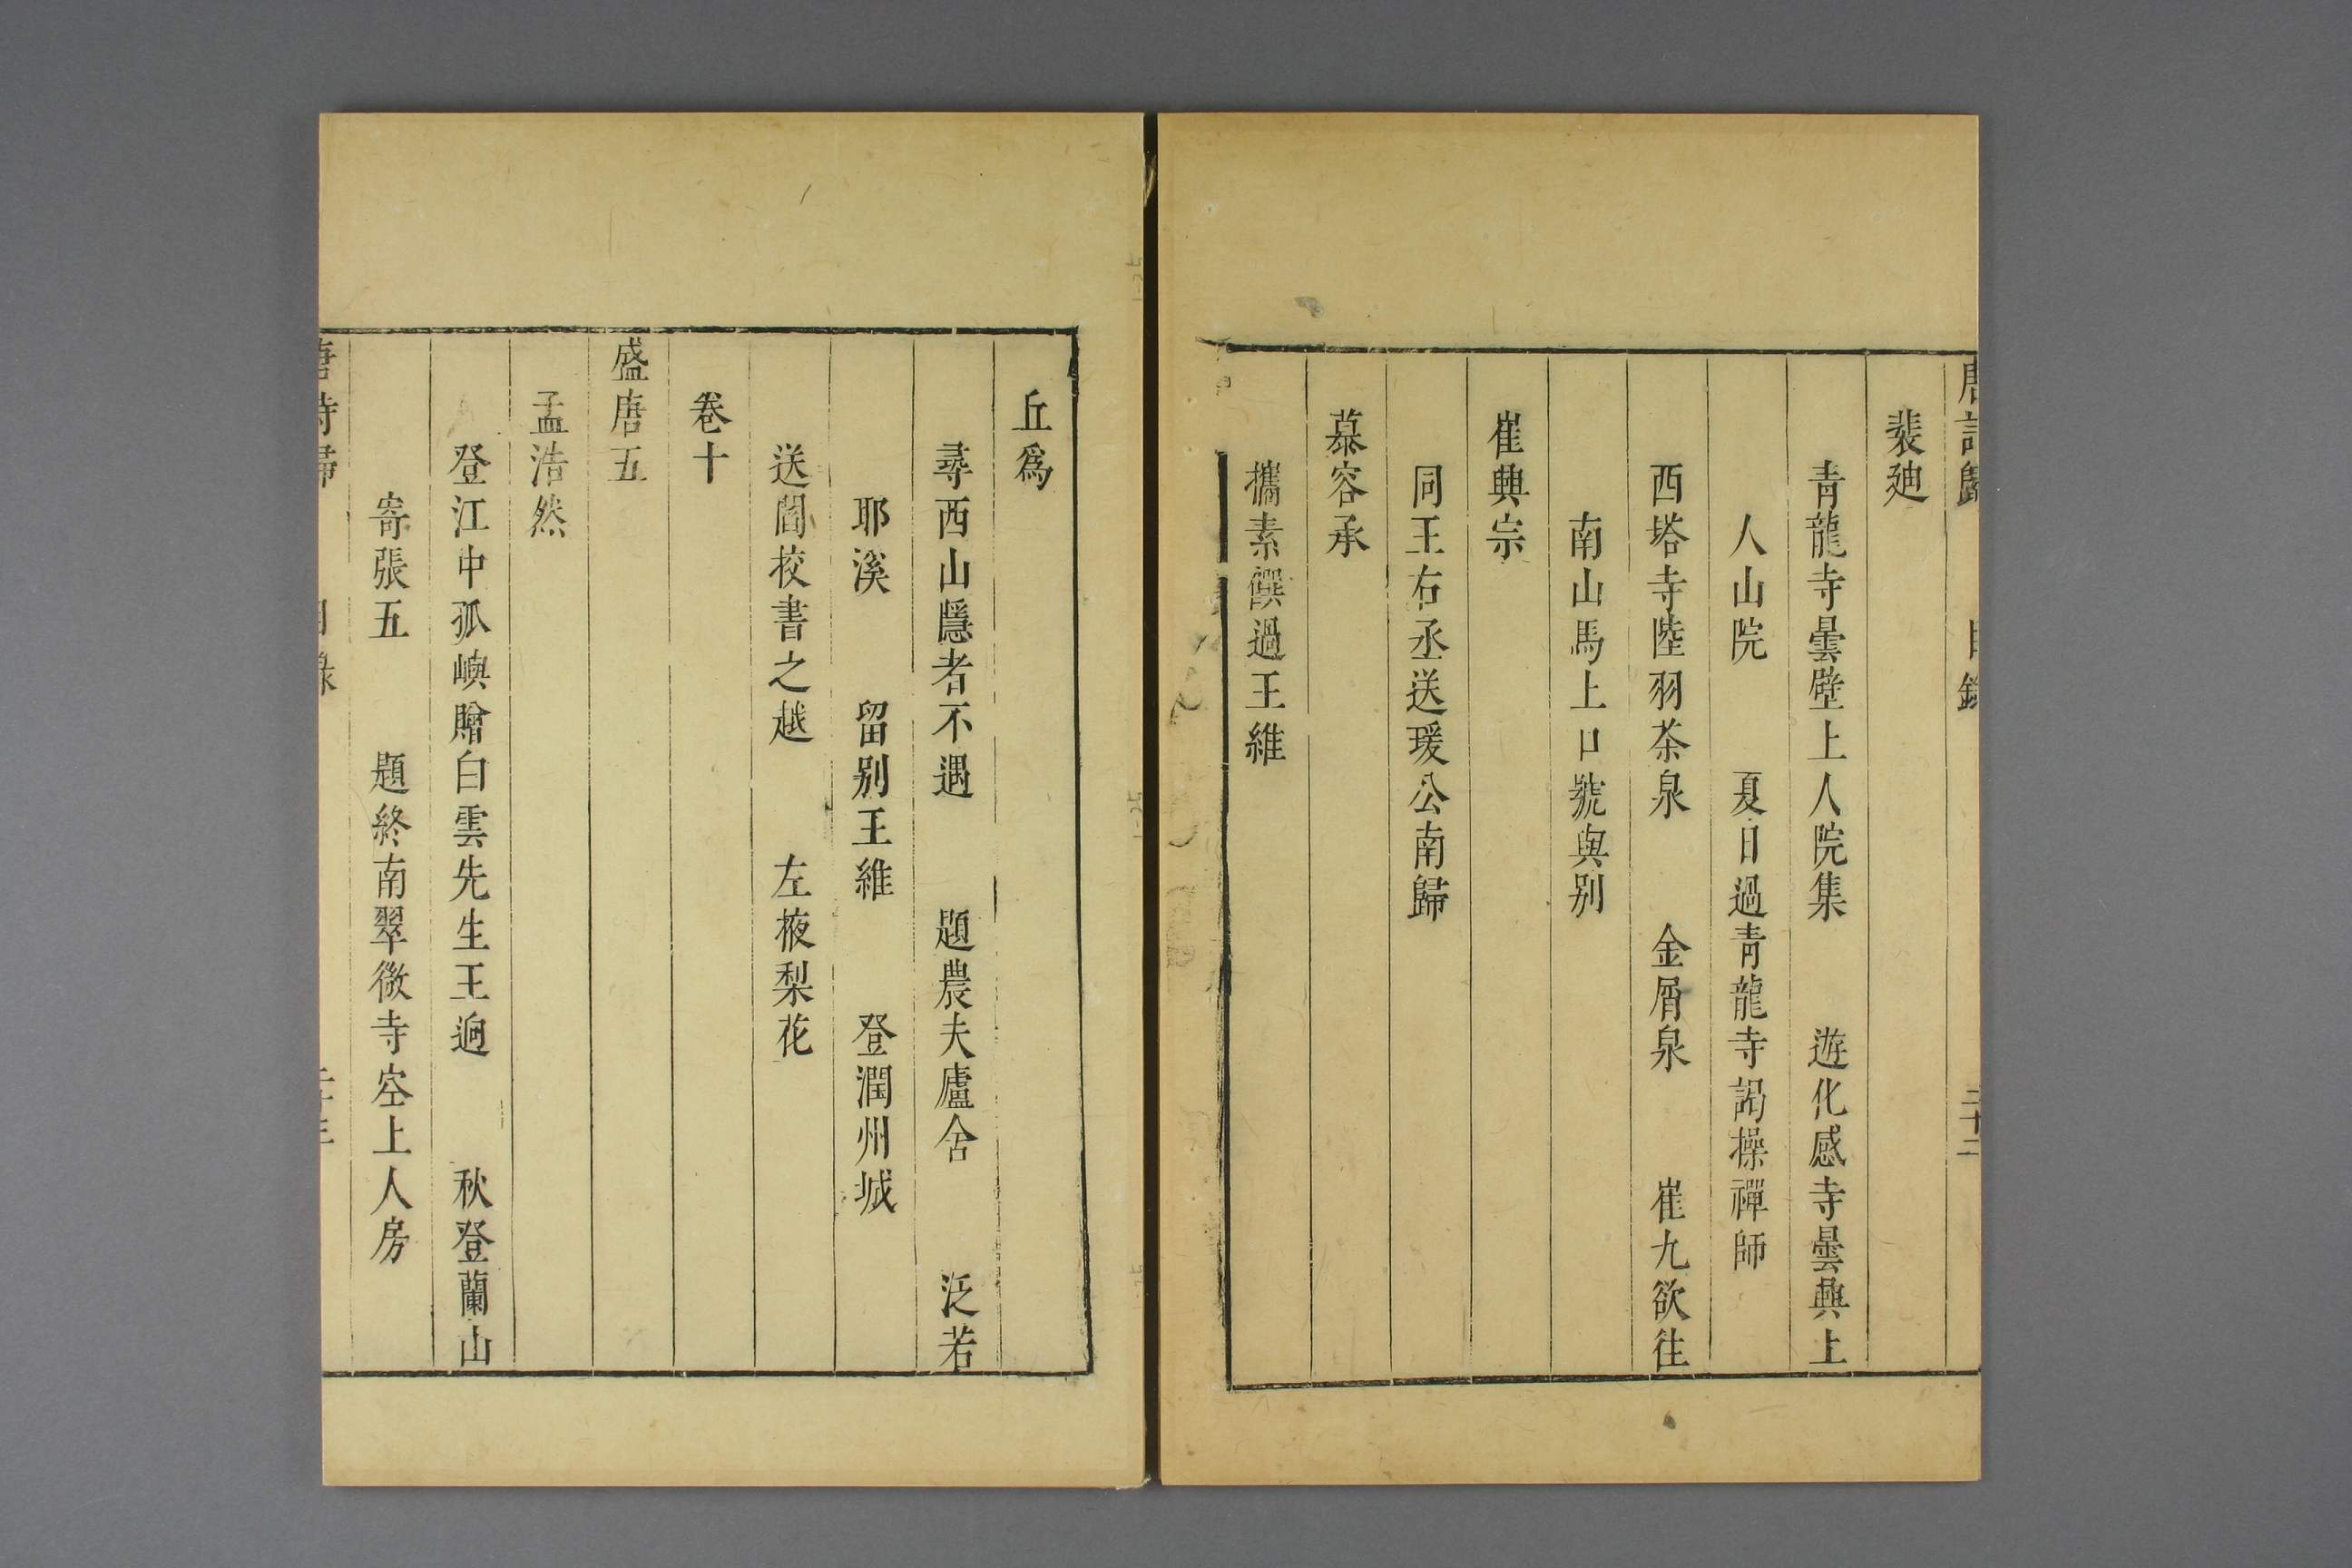 唐詩歸　目錄　三十二
裴廸
青龍寺曇壁上人院集　遊化感寺曇興上
人山院　夏日過青龍寺謁操禪師
西塔寺陸羽茶泉　金屑泉　崔九欲往
南山馬上口號與別
崔興宗
同王右丞送瑗公南歸
慕容承
攜素饌過王維
丘爲
尋西山隱者不遇　題農夫廬舍　泛若
耶溪　留別王維　登潤州城
送閻挍書之越　左掖梨花
卷十
盛唐五
孟浩然
登江中孤嶼贈白雲先生王逈　秋登蘭山
寄張五　題終南翠微寺空上人房
唐詩歸　目錄